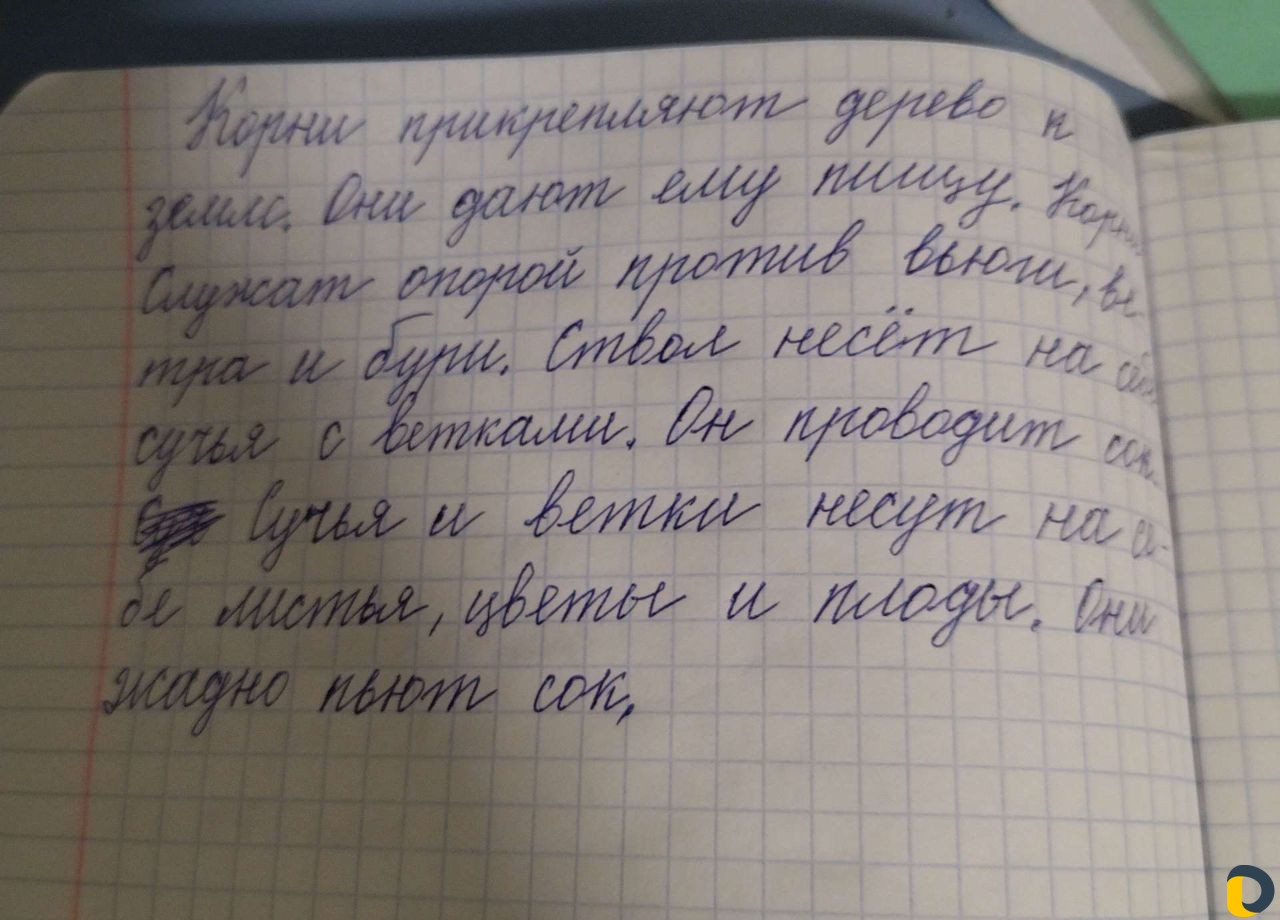 Корни прикрепляют дерево к
земле. Они дают ему пищу. Корни
Служат опорой против вьюги, ве-
тра и бури. Ствол несёт на себе
сучья с ветками. Он проводит сок
Сучья и ветки несут на се-
бе листья, цветы и плоды. Они
жадно пьют сок.